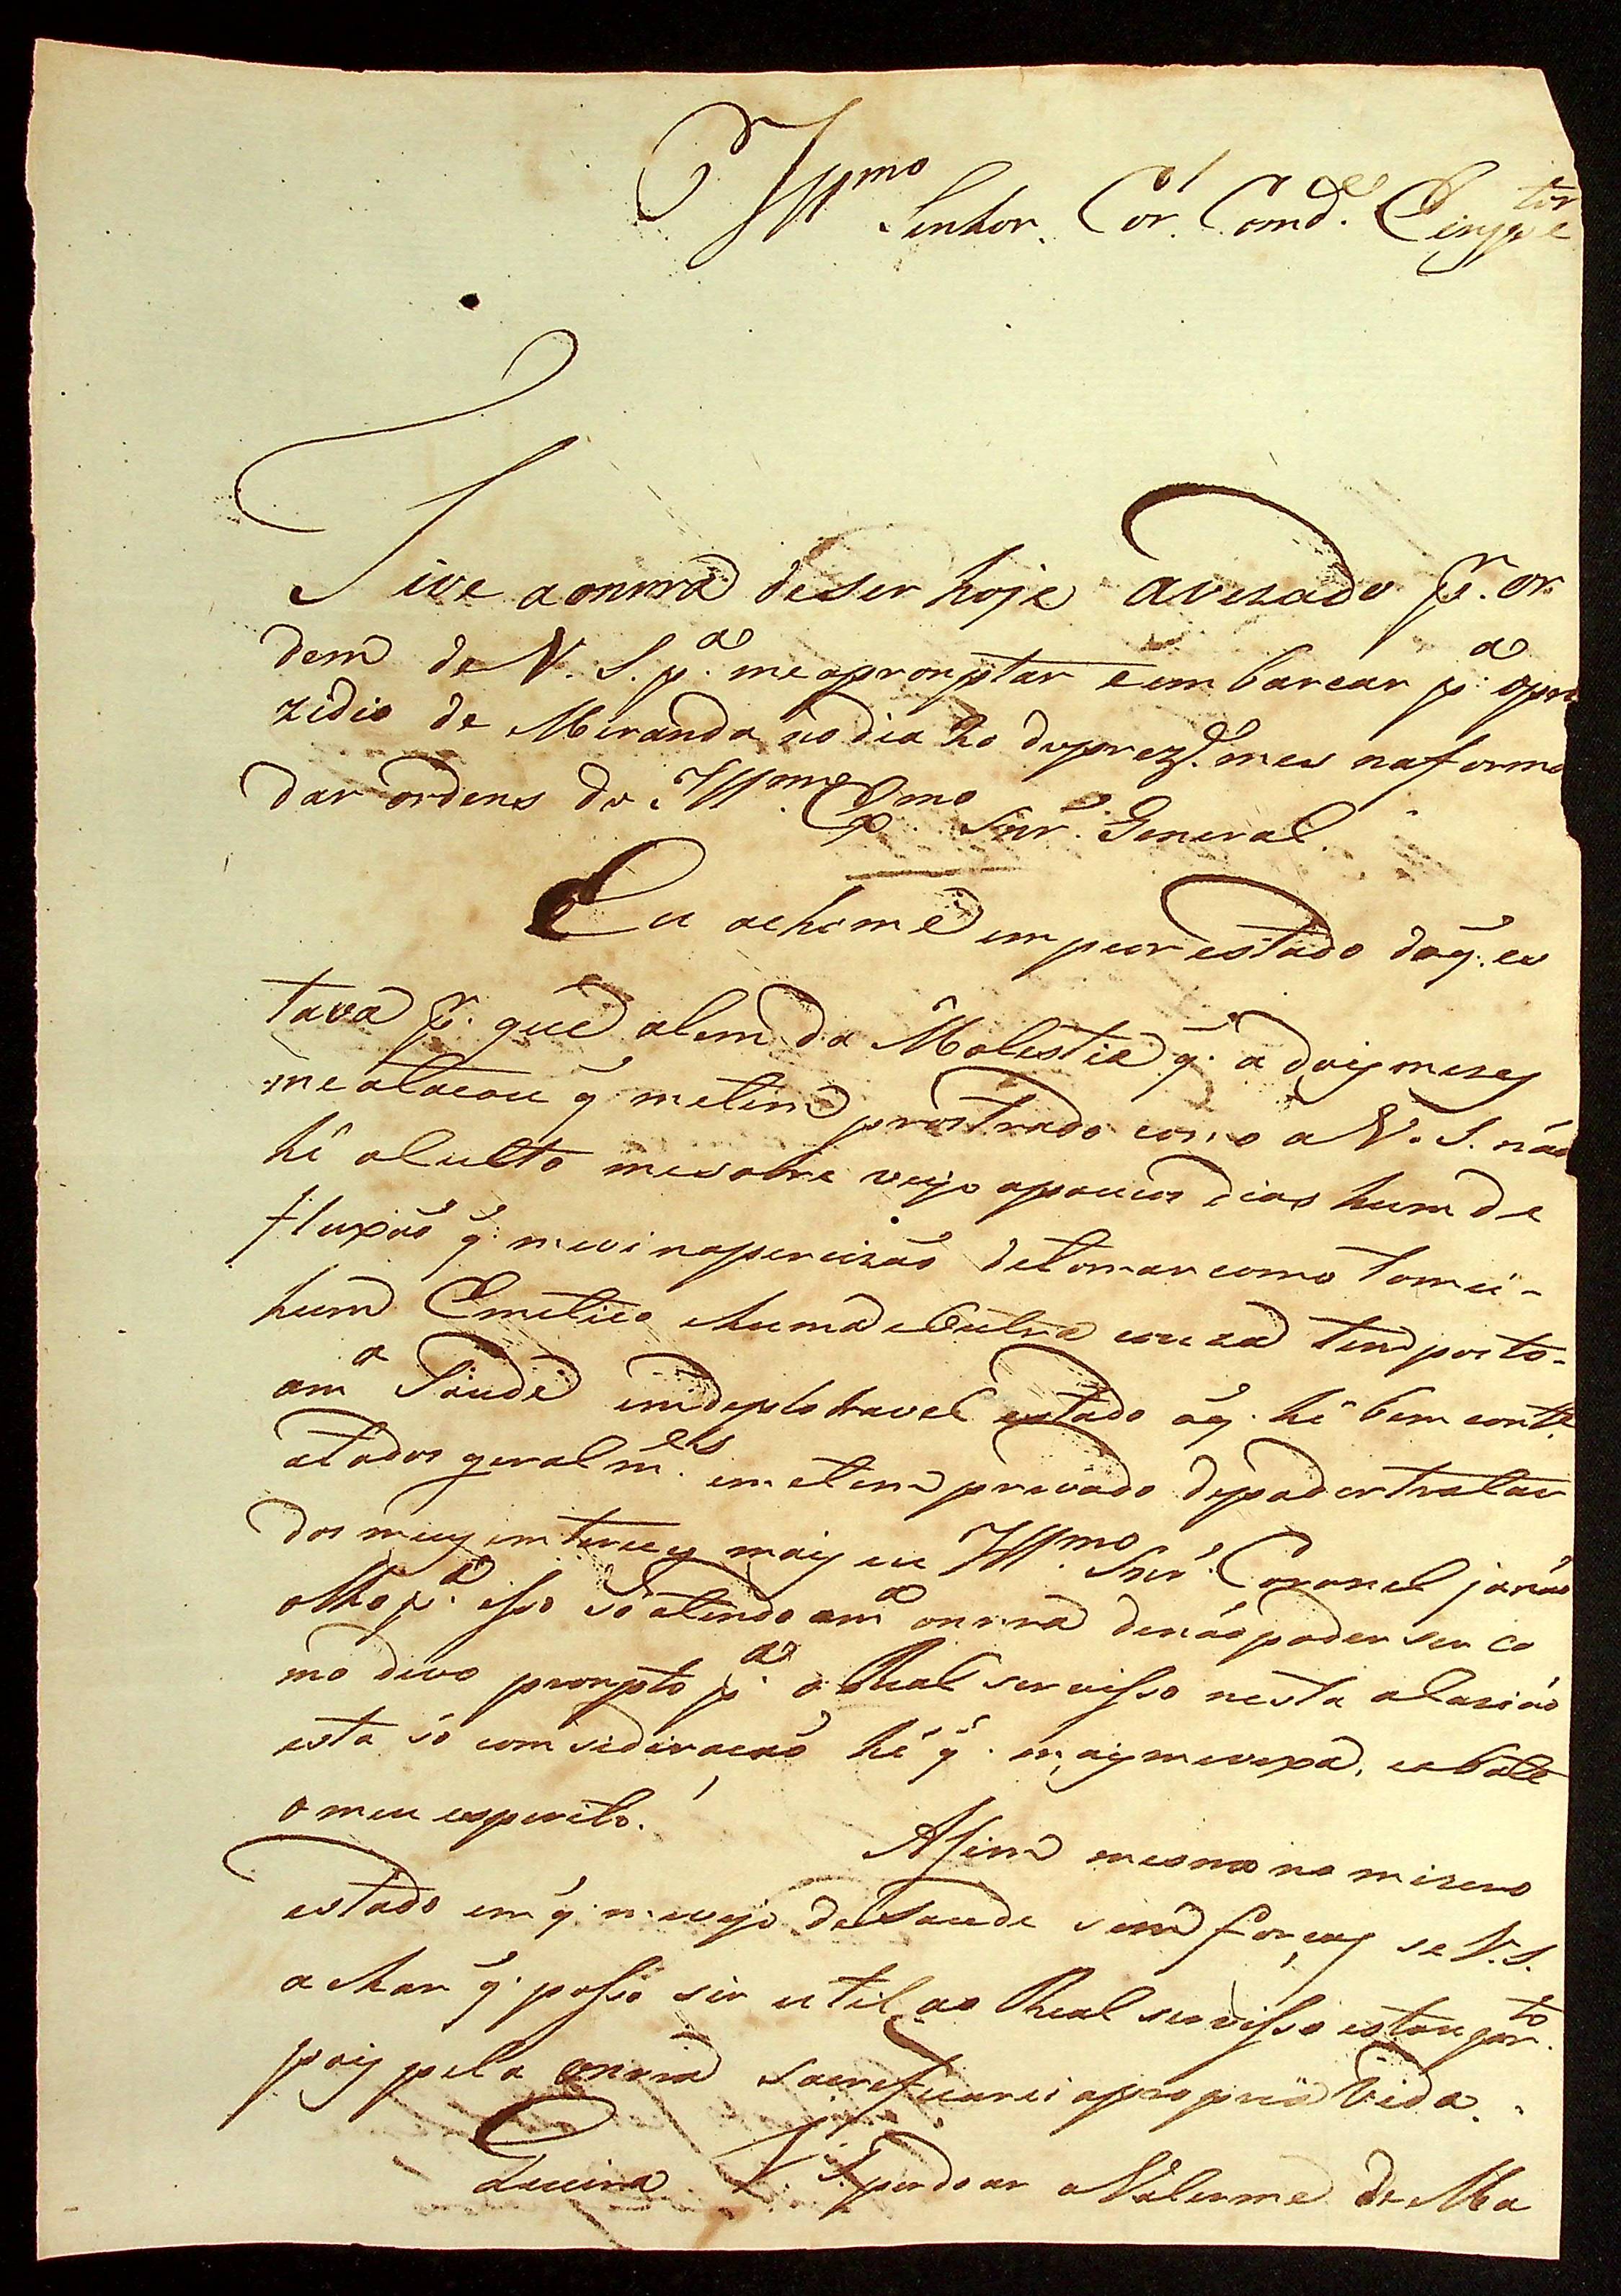 Ill.mo Senhor. Cor.l Comd.e
Tive aonrra deser hoje avezado p.r or
dem de V. S. p.a me apromptar e embarcar p.a opre
zidio de Miranda no dia 20 doprez.e mes naforma
dar ordens do Ill.mo Ex.mo Snr. General.
Eu achome em peor estado doq. es
tava p.r que alem da Molestia q. a doiz mezes
me atacou q. metem prostrado como a V. S. não
hê oculto mesobre veijo apoucos dias hum de
fluxão q. mevi napercizão detomar como tomei
hum Emetico huma e Outra couza tem posto
am.a Saude emdeplo travel estado oq. hê bem const.e
atodos geralm.e emetem privado depoder tratar
dos meus interces mais eu Ill.mo Snr. Coronel já não
olho p.a isso só atendo am.a onrra denão poder ser co
mo devo prompto p.a o Real servisso nesta ocazião
esta só comsidiração hê q. mais mevexa, eabate
o meu esperito.
Asim mesmo no mizero
estado em q. mevejo deSaude sem forças se V. S.
achar q. posso ser util ao Real servisso estou por.to
pois pela onrra sacreficarei apropria Vida.
Queira V. S. perdoar aValerme de Ma